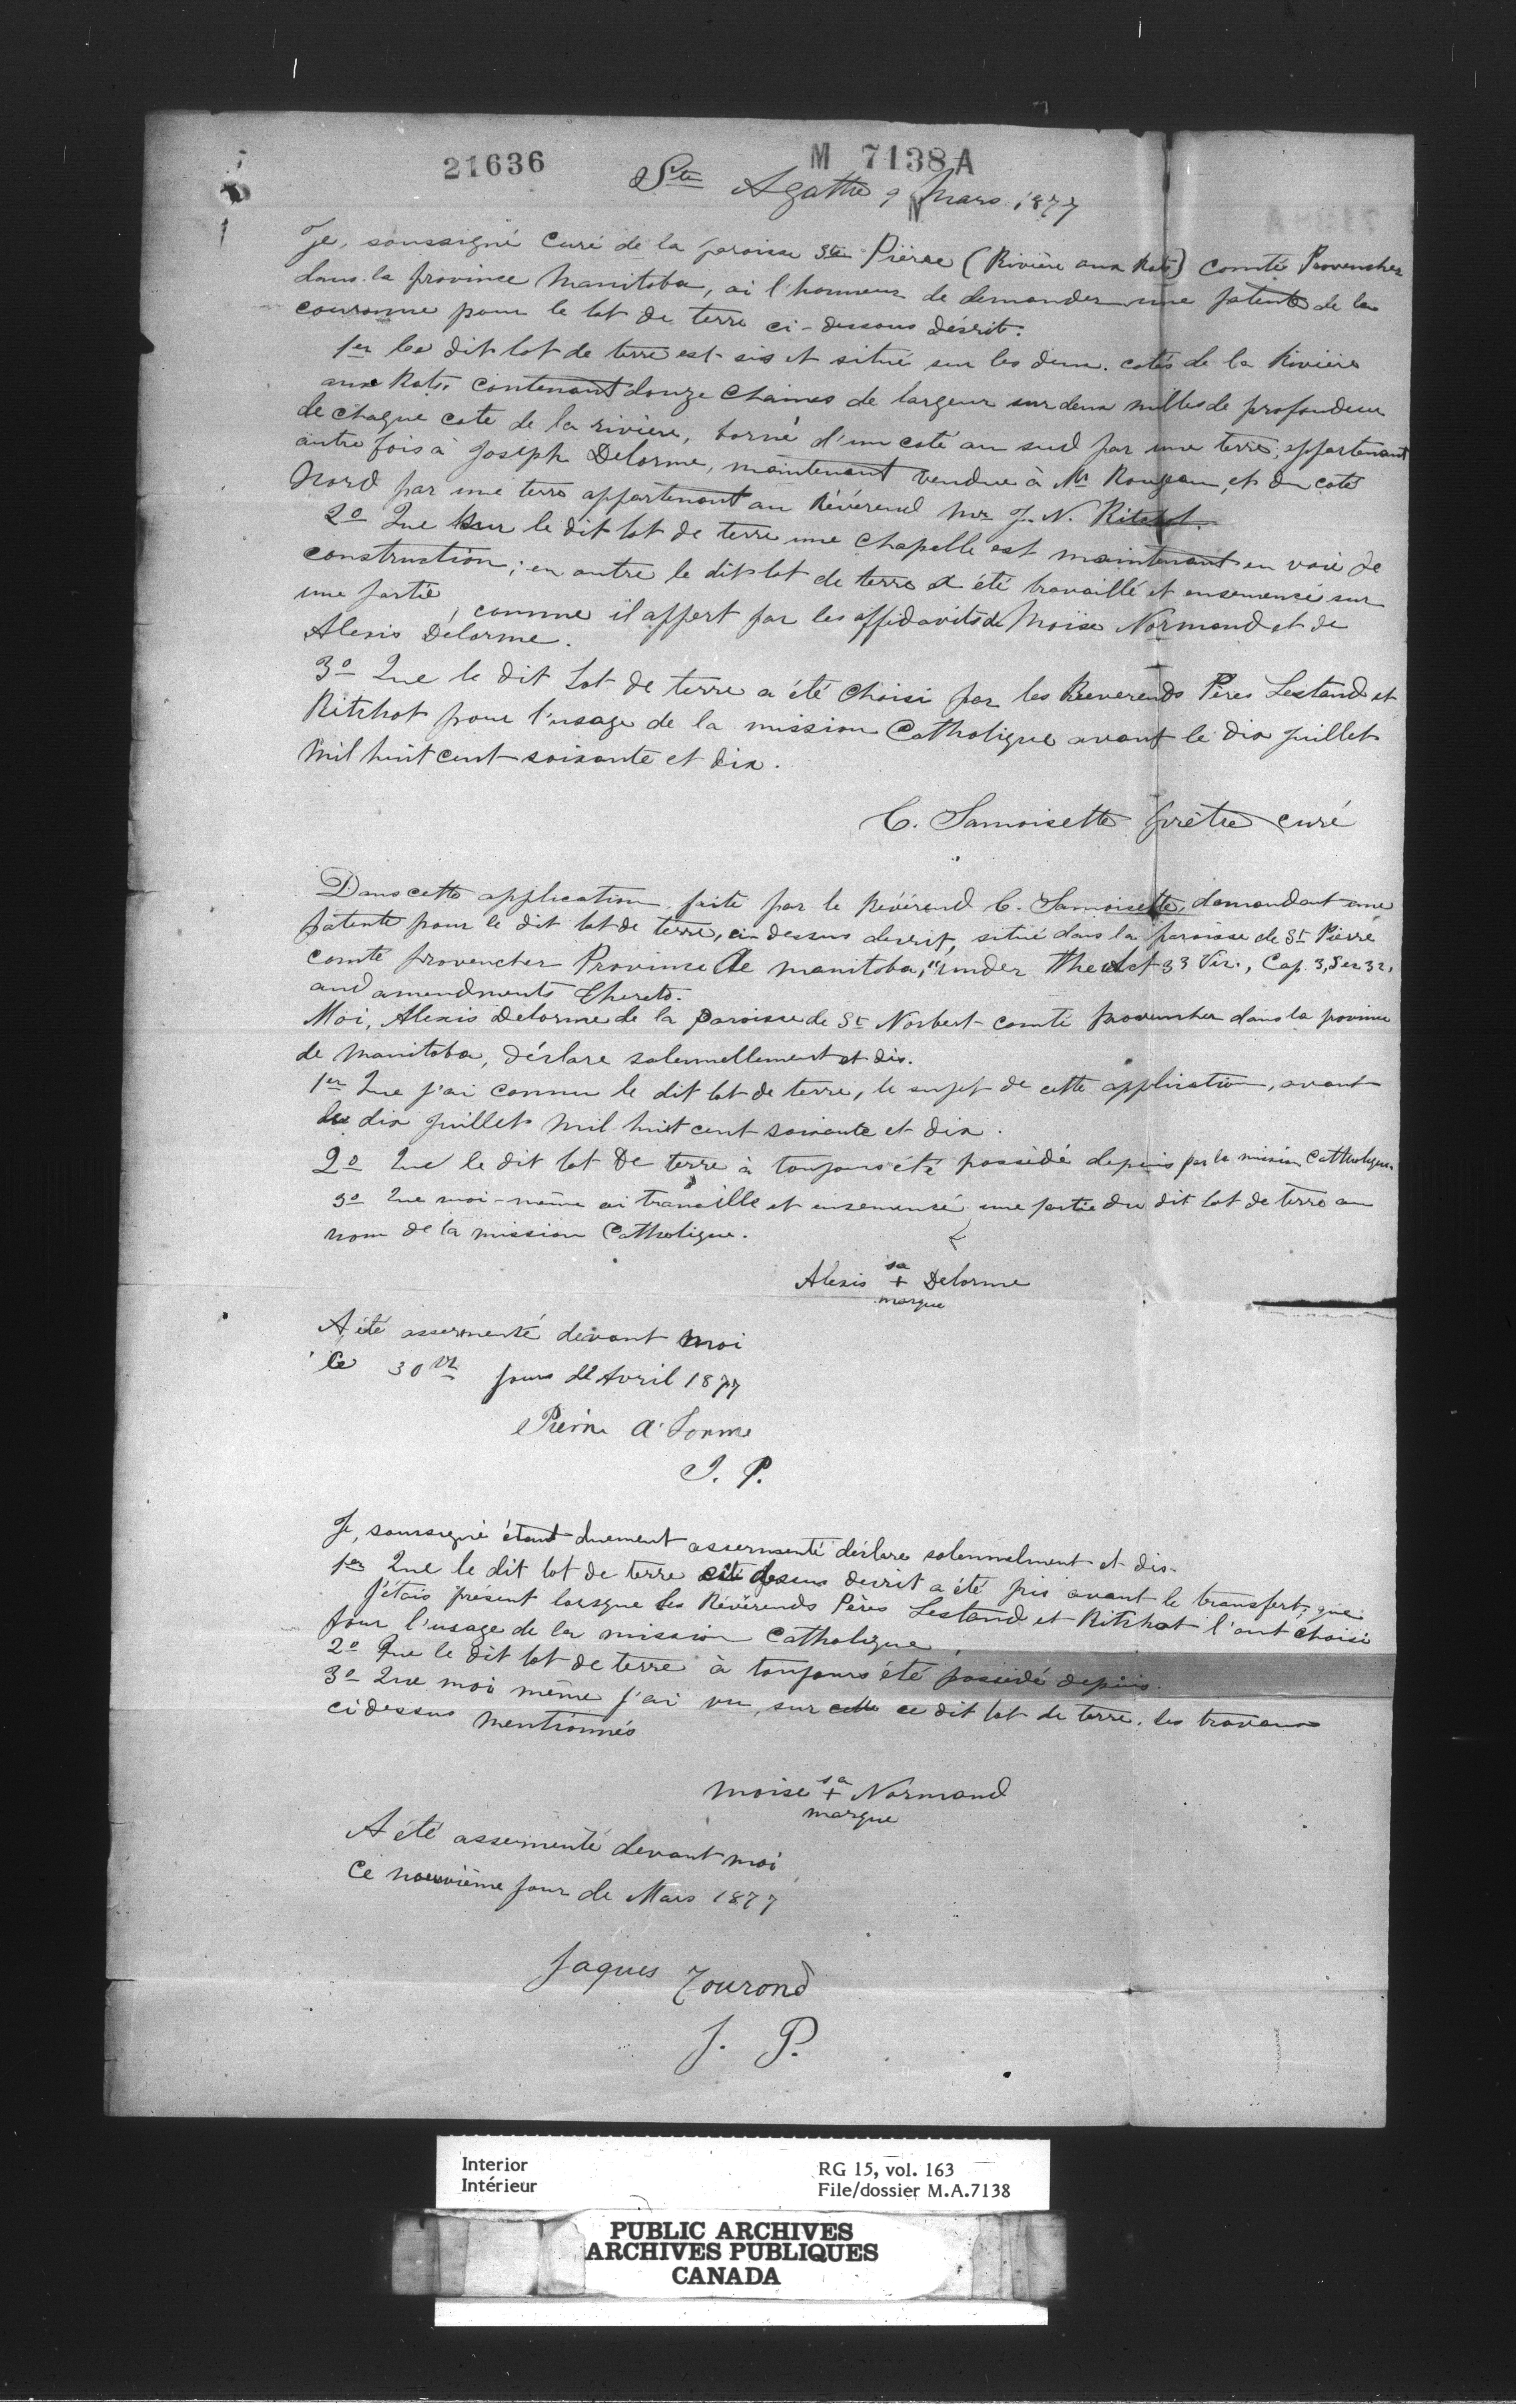 21636 M 7138 A
Ste Agathe 9 Mars 1877
Je, soussigné curé de la paroisse St Pierre (Rivière aux Rats) comté Provencher
dans la province Manitoba, ai l'honneur de demander une patente de la
couronne pour le lot de terre ci-dessous décrit:
1er le dit lot de terre est sis et situé sur les deux cotés de la Rivière
aux Rats contenant douze chaines de largeur sur deux milles de profondeur
de chaque cote de la rivière, borné d'un coté au sud par une terre, appartenant
autre fois à Joseph Delorme, maintenant vendue à Mr et du coté
Nord par une terre appartenant au Révérend Mr J. N. Ritchot.
2o Que sur le dit lot de terre une chapelle est maintenant en voie de
construction; en outre le dit lot de terre a été travaillé et ensemencé sur
une partie, comme il appert par les affidavits de Moïse Normand et de
Alexis Delorme.
3o Que le dit Lot de terre a été choisi par les Reverends Pères Lestand et
Ritchot pour l'usage de la mission Catholique avant le dix juillet
Mil huit cent soixante et dix.
C. Samoisette prêtre curé
Dans cette application faite par le Révérend C. Samoisette, demandant une
patente pour le dit lot de terre, ci dessus decrit, situé dans la paroisse de St Pierre
comté provencher Province de Manitoba, "under the Act 33 Vic., Cap. 3, Sec 32,
and amendments thereto.
Moi, Alexis Delorme de la Paroisse de St Norbert comté provencher dans la province
de Manitoba, déclare solennellement et dis.
1er Que j'ai connu le dit lot de terre, le sujet de cette application, avant
le dix juillet mil huit cent soixante et dix.
2o Que le dit lot De terre à toujours été possédé depuis par la mission Catholique.
3o Que moi-même ai travaillé et ensemencé une partie du dit lot de terre au
nom de la mission Catholique.
Alexis sa + Delorme
marque
A été assermenté devant moi
Ce 30me jours de Avril 1877
Pierre
J. P.
Je, soussigné étant duement assermenté déclare solennelment et dis-
1er Que le dit lot de terre ci dessus decrit a été pris avant le transfert, que
j'étais présent lorsque les Révérends Pères Lestand et Ritchot l'ont choisi
pour l'usage de la mission Catholique.
2o Que le dit lot de terre à toujours été possédé depuis.
3o Que moi même j'ai vu, sur ce dit lot de terre, les travaux
ci dessus mentionnés
Moise sa + Normand
marque
A été assermenté devant moi
Ce neuvième jour de Mars 1877
Jaques Tourond
J. P.
Interior RG 15, vol. 163
Intérieur File/dossier M.A.7138
PUBLIC ARCHIVES
ARCHIVES PUBLIQUES
CANADA